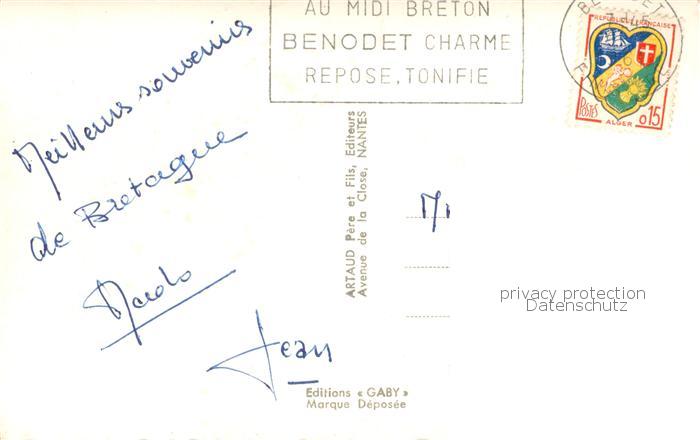 Meilleurs souvenirs
de Bretagne
Jean
AU MIDI BRETON
BENODET CHARME
REPOSE, TONIFIE
REPUBLIQUE FRANÇAISE
POSTES
ALGER
0,15
ARTAUD Père et Fils, Editeurs
Avenue de la Close, NANTES
privacy protection
Datenschutz
Editions « GABY »
Marque Déposée